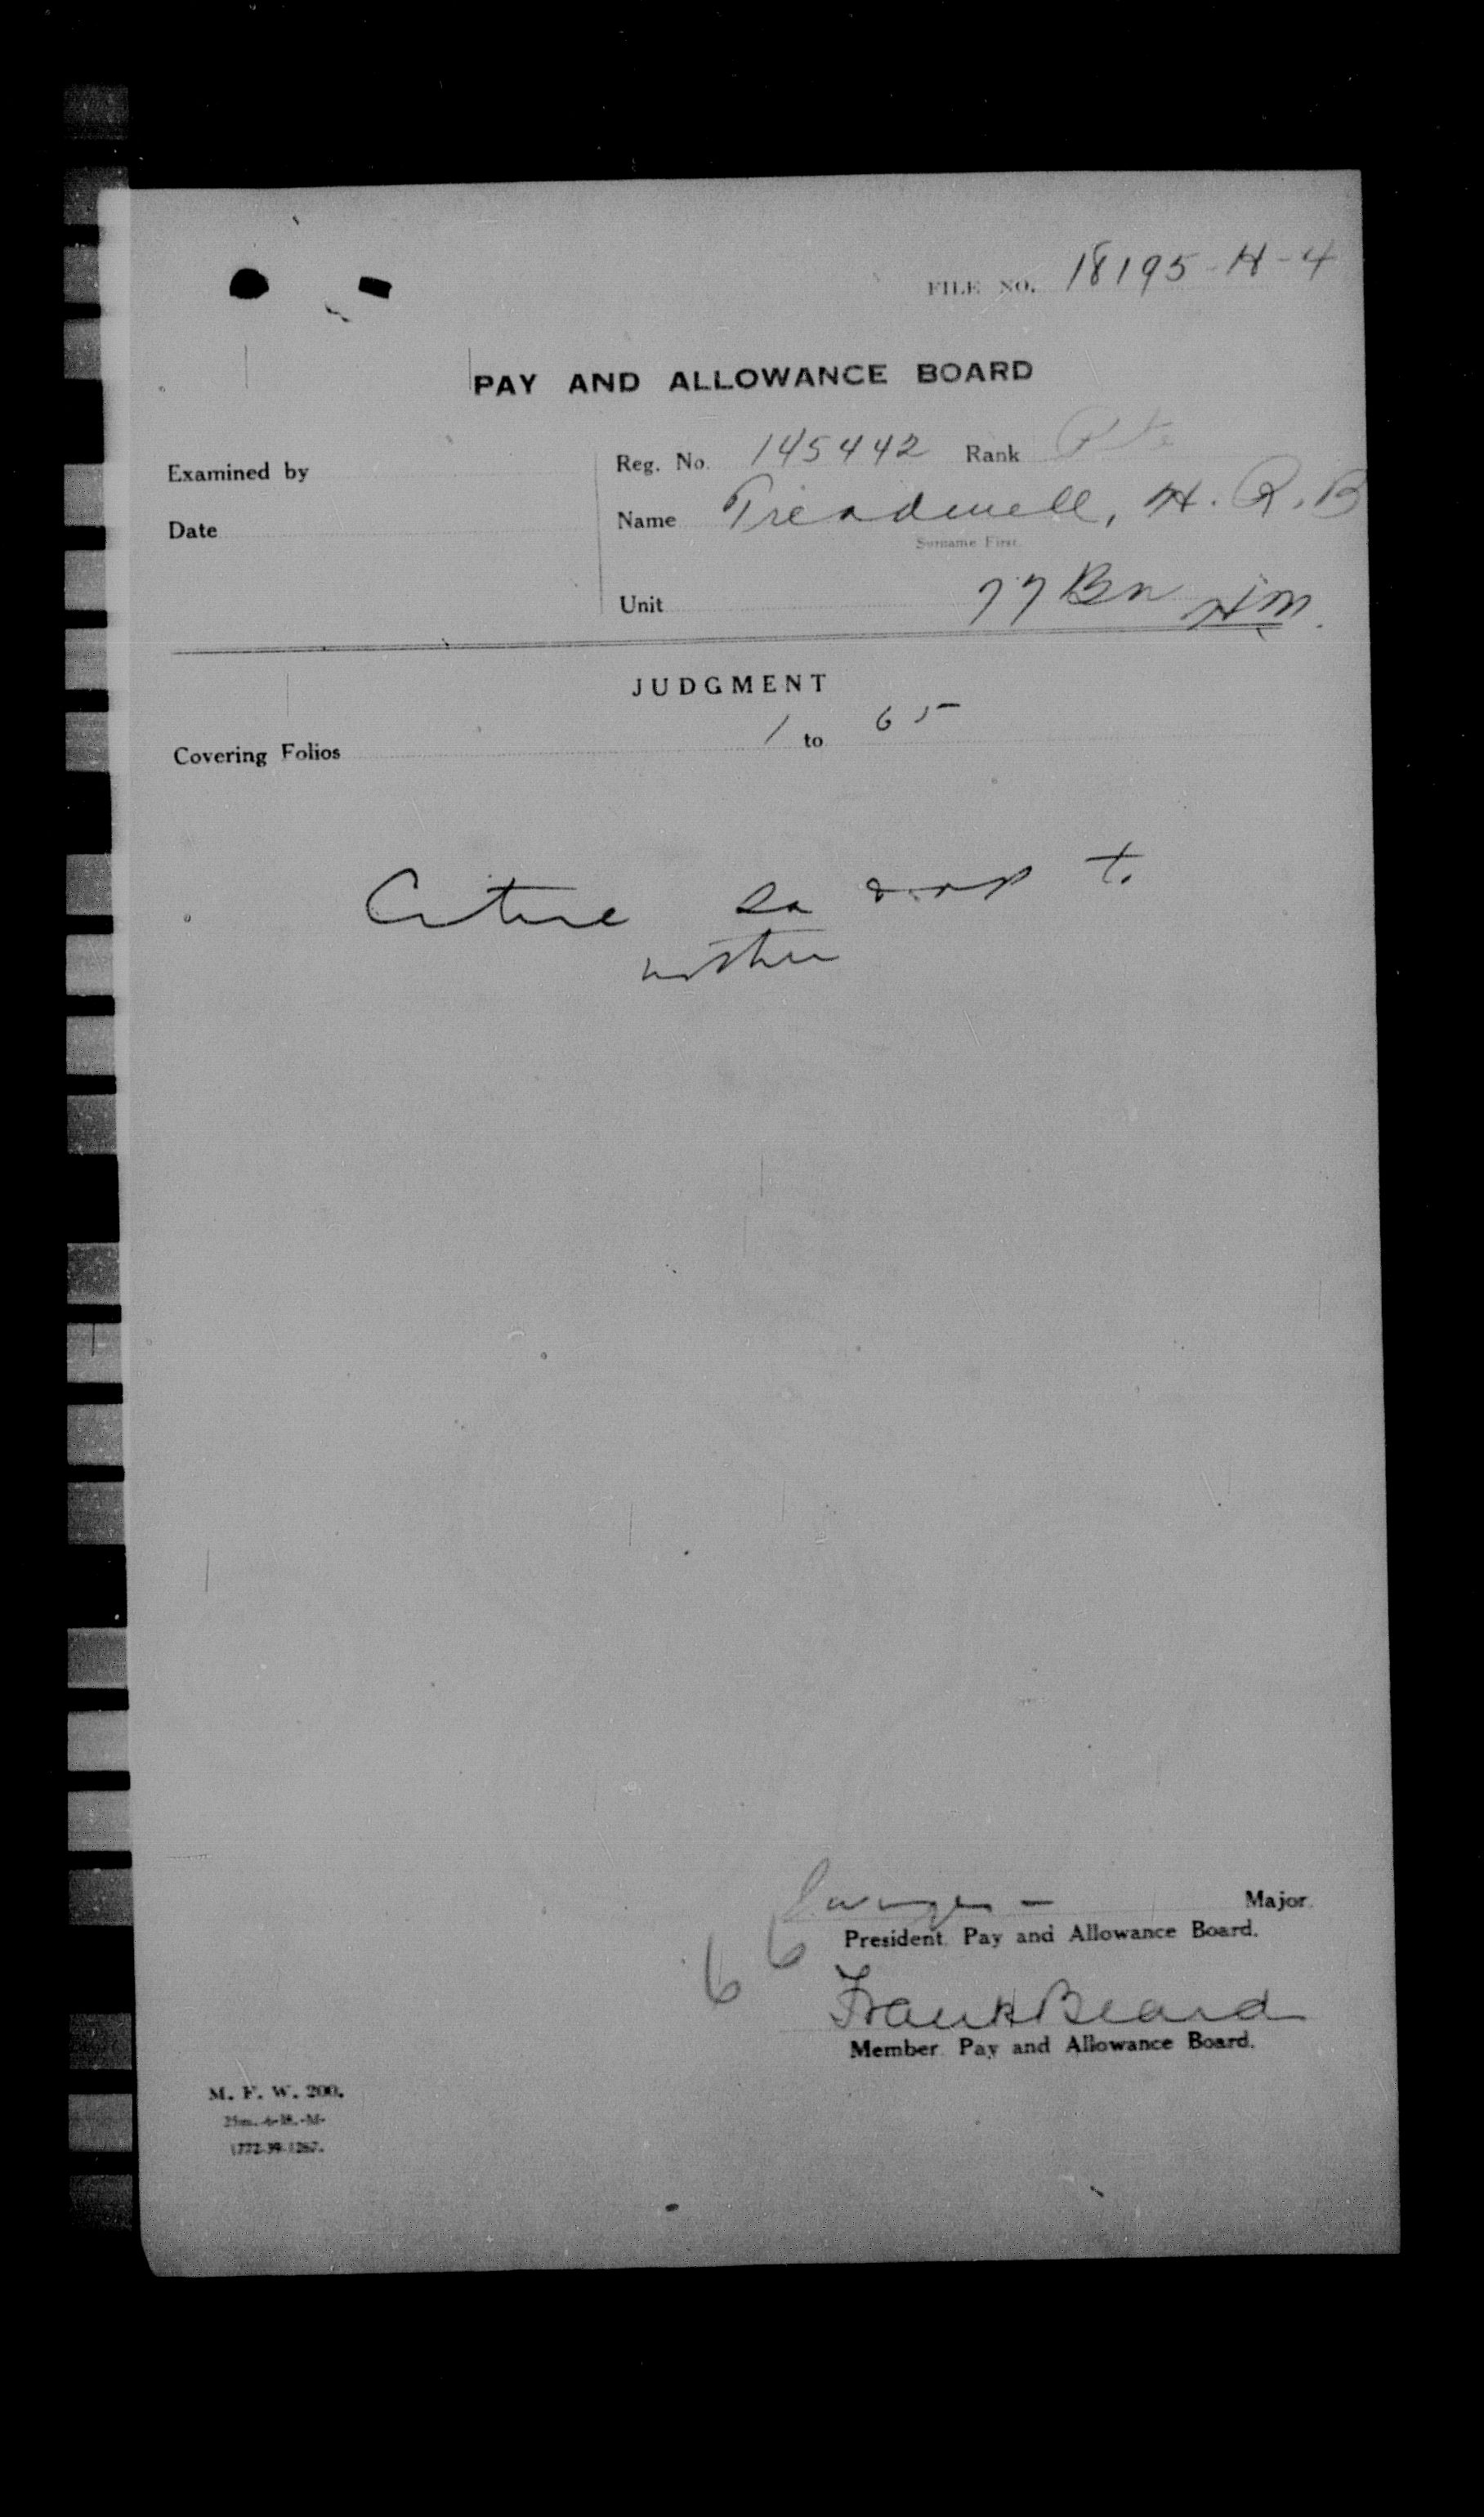 FILE NO. 18195-H-4
PAY AND ALLOWANCE BOARD
Examined by
Reg. No. 145442 Rank Pte
Date
Name Treadwell, H. R. B
Surname First.
Unit 77 Bn
JUDGMENT
Covering Folios 1 to 65
to
mother
Major.
President Pay and Allowance Board.
66
Frank Beard
Member Pay and Allowance Board.
M. F. W. 200.